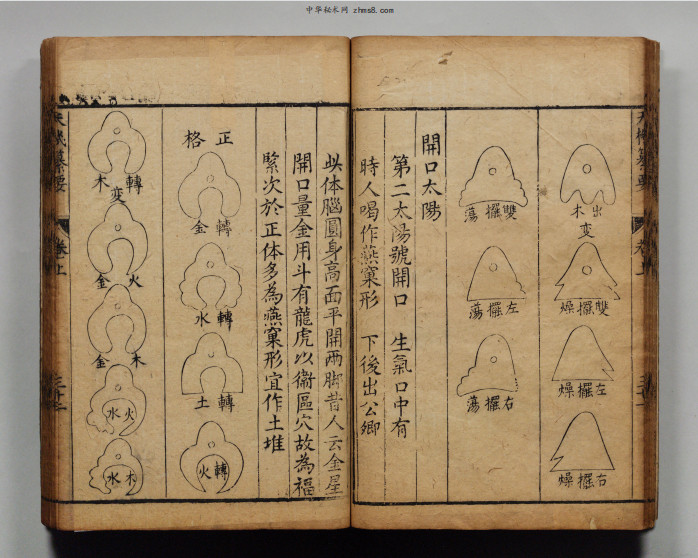 中华秘术网 zhms8.com
出木
變
雙擺燥
左擺燥
右擺燥
雙擺蕩
左擺蕩
右擺蕩
開口太陽
第二太陽號開口 生氣口中有
時人喝作燕窠形 下後出公卿
此体腦圓身高面平開两脚昔人云金星
開口量金用斗有龍虎以衛區穴故為福
緊次於正体多為燕窠形宜作土堆
正格
轉金
轉水
轉土
轉火
轉木
變
火金
木金
火水
木水
卷上